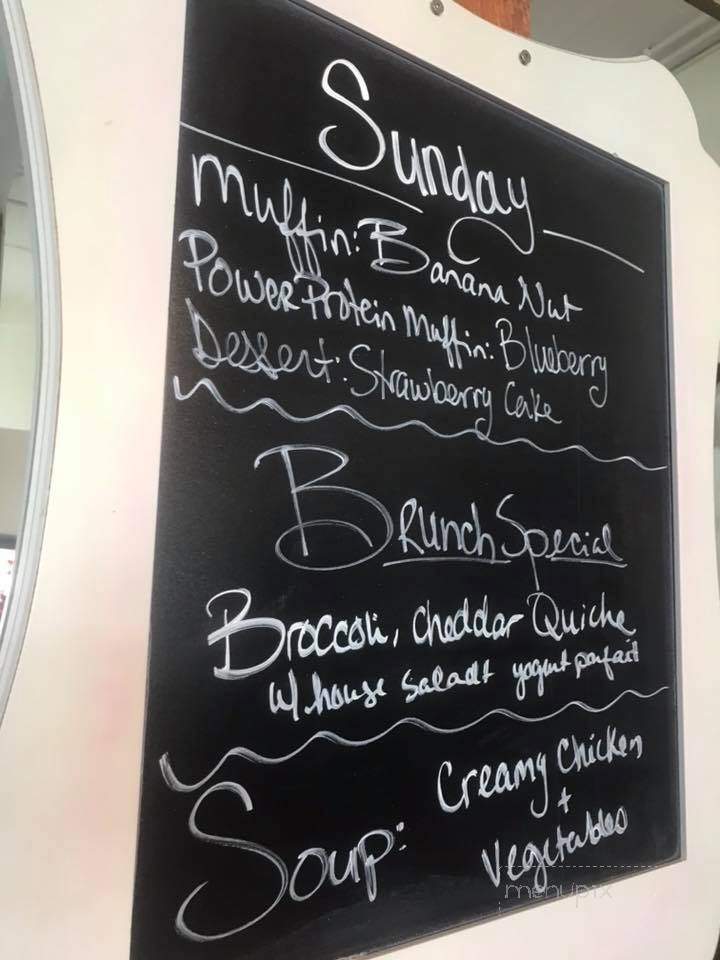 Sunday
Muffin: Banana Nut
Power Protein Muffin: Blueberry
Dessert: Strawberry Cake
Brunch Special
Broccoli, Cheddar Quiche
w/ house salad + yogurt parfait
Soup: Creamy Chicken
+
Vegetables
menupix